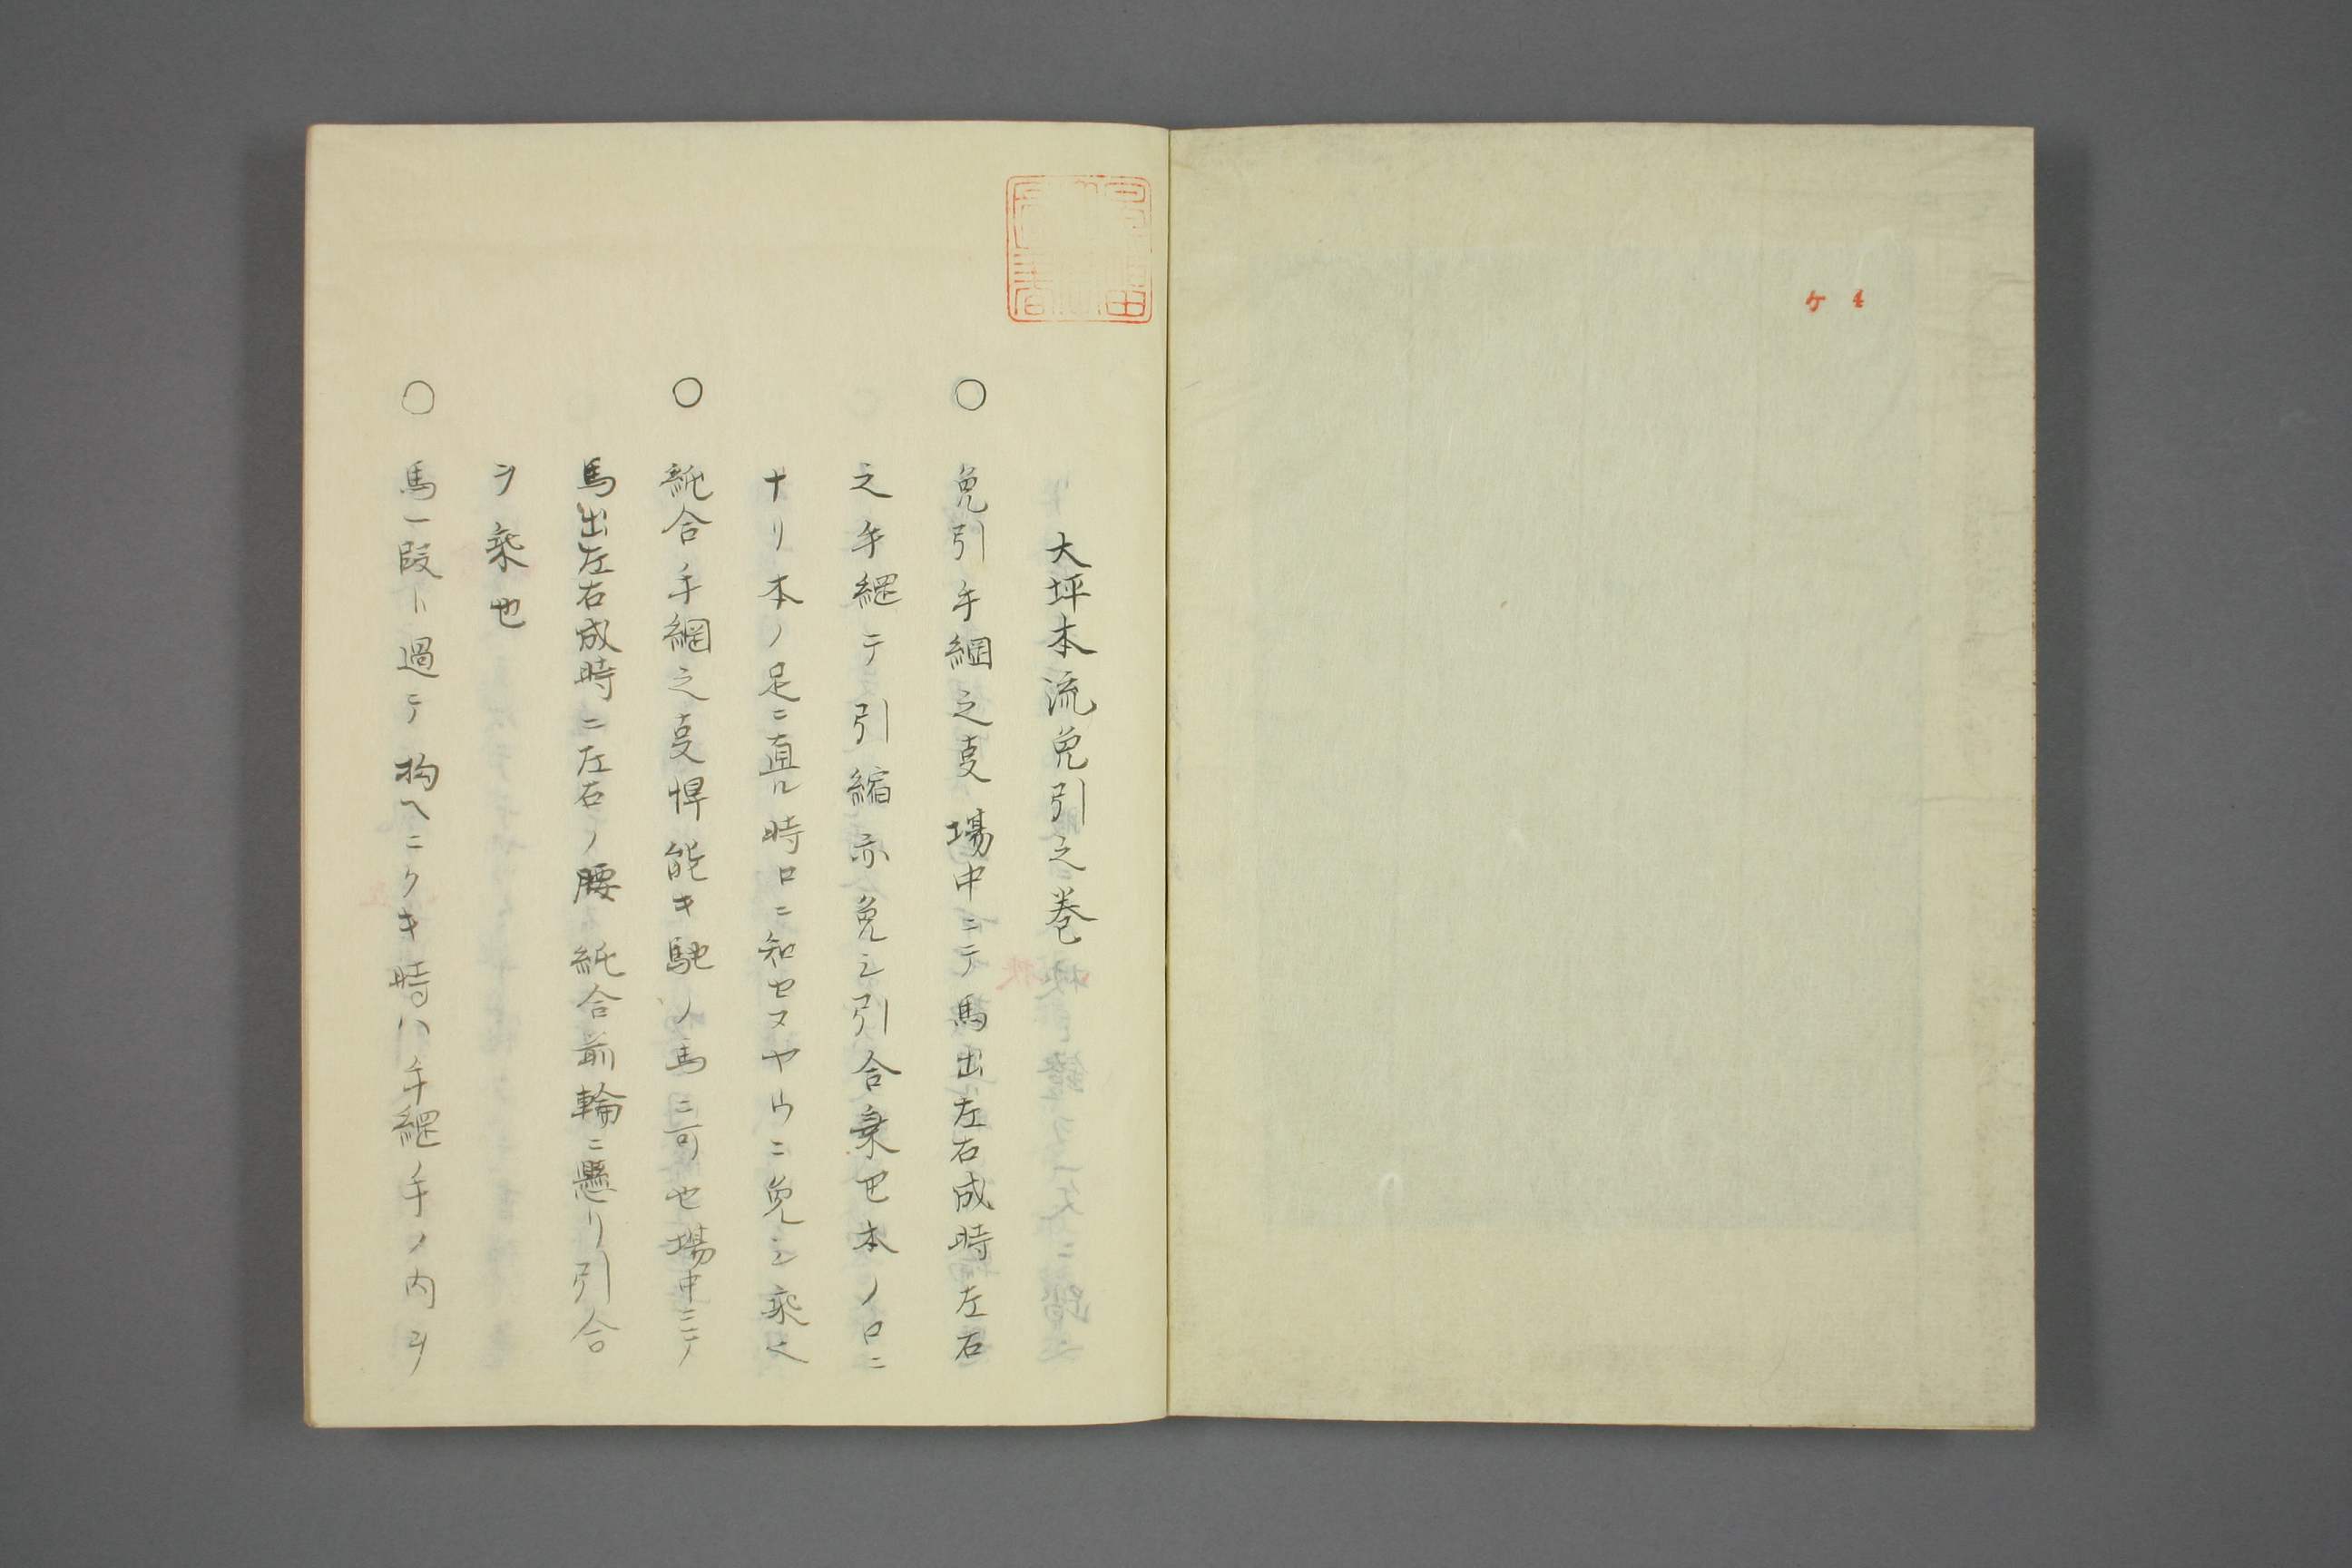 ケ 4
大坪本流免引之巻
○ 免引手綱之㕝場中ニテ馬出左右成時左右
之手綱テ引縮亦免シ引合乗也本ノ口ニ
ナリ本ノ足ニ直ル時口ニ知セヌヤウニ免シ乗ヘ
○ 紕合手綱之㕝悍能キ馳ノ馬ニ可也場中ニテ
馬出左右成時ニ左右ノ腰紕合前輪ニ懸リ引合
ヲ乗也
○ 馬一段ト過テ拘ヘニクキ時ハ手綱手ノ内ヲ